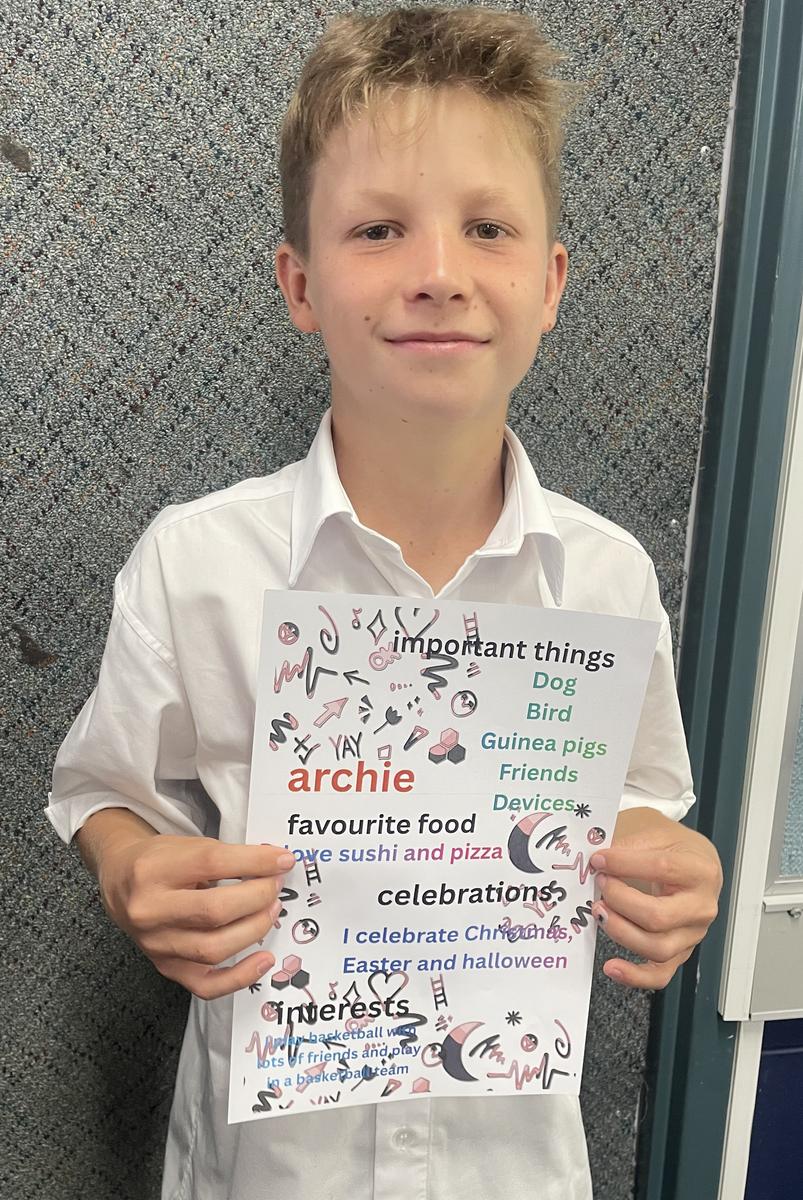 important things
Dog
Bird
Guinea pigs
Friends
Devices
YAY
archie
favourite food
love sushi and pizza
celebrations
I celebrate Christmas,
Easter and halloween
interests
I play basketball with
lots of friends and play
in a basketball team